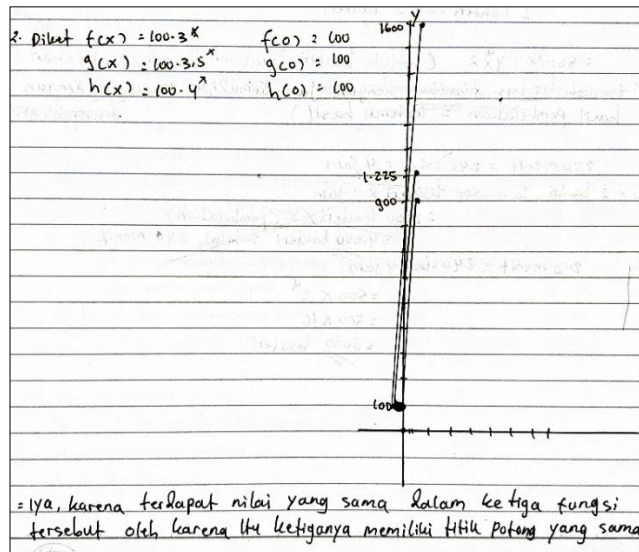 2. Diket f(x) = 100.3^x    f(0) = 100
g(x) = 100.3,5^x    g(0) = 100
h(x) = 100.4^x    h(0) = 100
y
1600
1.225
900
100
= Iya, karena terdapat nilai yang sama dalam ketiga fungsi
tersebut oleh karena itu ketiganya memiliki titik potong yang sama